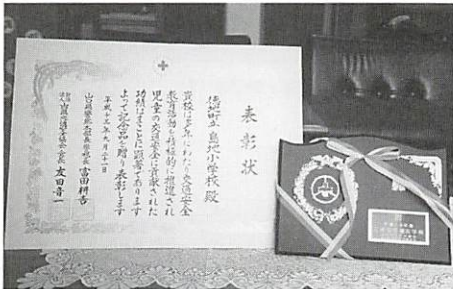 表彰状
徳地町立島地小学校 殿
貴校は多年にわたり交通安全
教育活動を積極的に推進され
児童の交通安全に貢献された
功績はまことに顕著であります
よって記念品を贈り表彰します
平成十三年九月二十一日
山口県警察本部長 富田耕吉
山口県交通安全協会会長 友田晋一